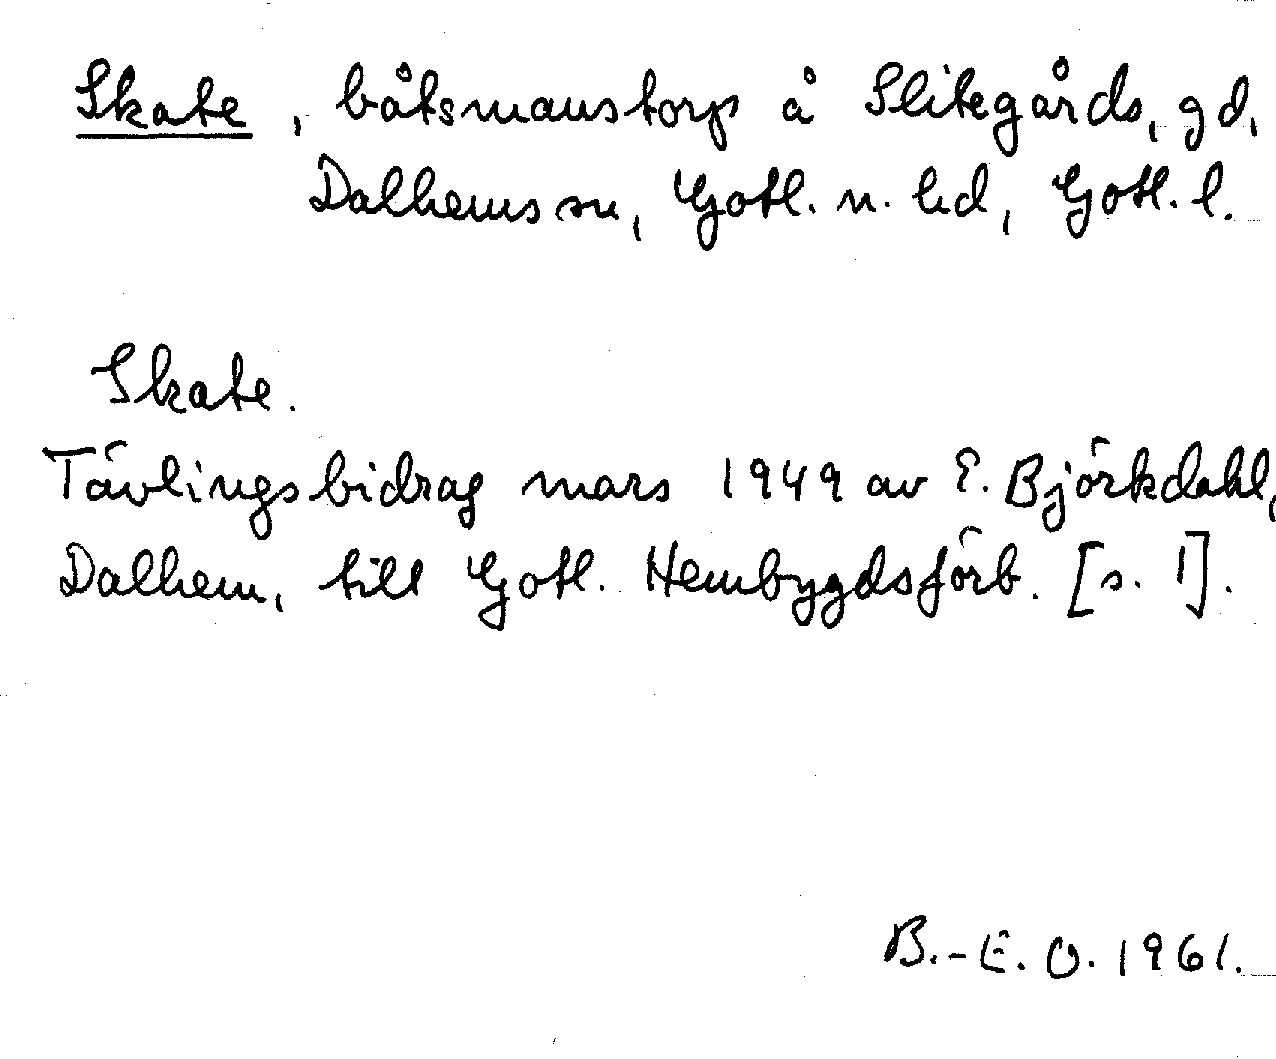 Skate, båtsmanstorp å Slitegårds, gd,
Dalhems sn, Gotl. n. hd, Gotl. l.
Skate.
Tävlingsbidrag mars 1949 av E. Björkdahl,
Dalhem, till Gotl. Hembygdsförb. [s. 1].
B.-E. O. 1961.